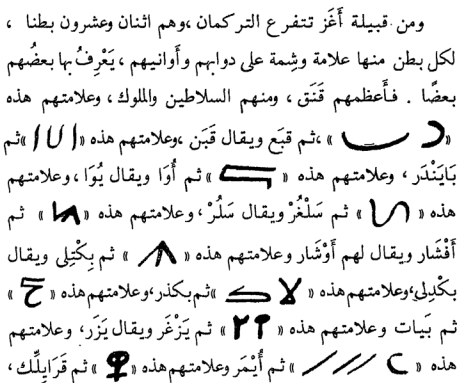 ومن قبيلة أُغُز تتفرع التركمان ،وهم اثنان وعشرون بطنا ،
لكل بطن منها علامة وسِمة على دوابهم وأوانيهم ،يَعْرِفُ بها بعضُهم
بعضًا . فأعظمهم قَنَق ، ومنهم السلاطين والملوك، وعلامتهم هذه
« » ،ثم قبَع ويقال قَبَن ،وعلامتهم هذه « » ثم
بَايَنْدَر، وعلامتهم هذه « » ثم أُوَا ويقال يُوَا، وعلامتهم
هذه « » ثم سَلْغُرْ ويقال سَلُرْ، وعلامتهم هذه « » ثم
أَفْشَار ويقال لهم أَوْشَار وعلامتهم هذه « » ثم بِكْتِلى ويقال
بكْدِلى،وعلامتهم هذه « » ثم بكذر،وعلامتهم هذه « »
ثم بَيات وعلامتهم هذه « » ثم يَزْغَر ويقال يَزَر، وعلامتهم
هذه « » ثم أَيْمَر وعلامتهم هذه « » ثم قَرَابِلُك،